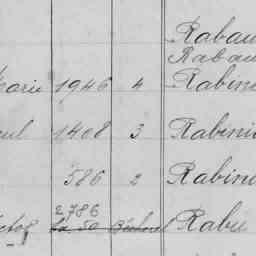 Rabau
Rabau
Marie 1946 4 Rabine
1408 3 Rabini
586 2 Rabine
2786
Rabu